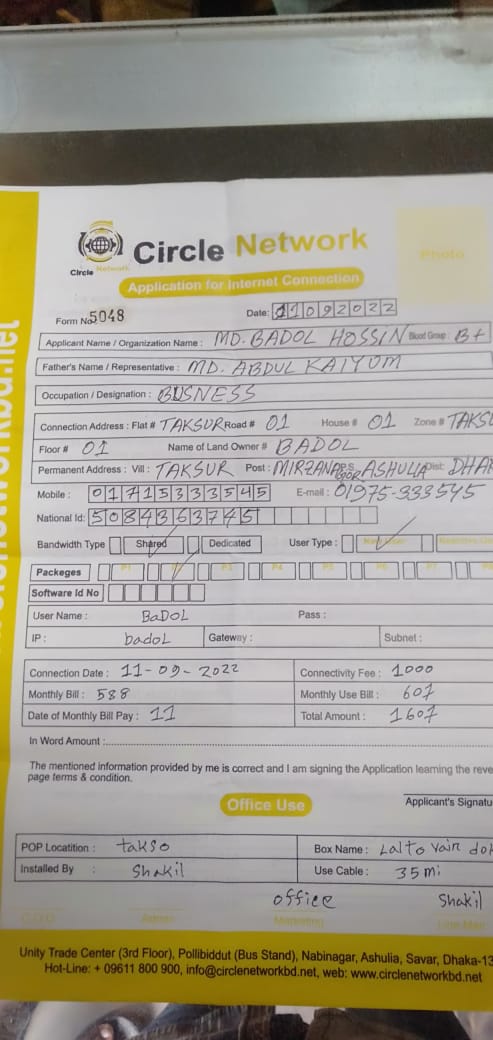 Circle Network
Circle Network
Photo
Application for Internet Connection
Form No. 5048
Date: 11092022
Applicant Name / Organization Name : MD. BADOL HOSSIN Blood Group : B+
Father's Name / Representative : MD. ABDUL KAIYUM
Occupation / Designation : BUSNESS
Connection Address : Flat # TAKSUR Road # 01 House # 01 Zone # TAKSU
Floor # 01 Name of Land Owner # BADOL
Permanent Address : Vill : TAKSUR Post : MIRZANAGOR P.S ASHULIA Dist: DHAK
Mobile : 01715333545 E-mail : 01975-333545
National Id: 5084363745
Bandwidth Type Shared Dedicated User Type : New User
Packeges P1 P2 P3 P4 P5 P6 P7 P8
Software Id No
User Name : BaDOL Pass :
IP : badoL Gateway : Subnet :
Connection Date : 11-09-2022 Connectivity Fee : 1000
Monthly Bill : 588 Monthly Use Bill : 607
Date of Monthly Bill Pay : 11 Total Amount : 1607
In Word Amount :
The mentioned information provided by me is correct and I am signing the Application learning the reve
page terms & condition.
Applicant's Signatu
Office Use
POP Locatition : takso Box Name : Lalto Vain dok
Installed By : Shakil Use Cable : 35mi
office Shakil
C.O.O Admin Marketing Line Man
Unity Trade Center (3rd Floor), Pollibiddut (Bus Stand), Nabinagar, Ashulia, Savar, Dhaka-13
Hot-Line: + 09611 800 900, info@circlenetworkbd.net, web: www.circlenetworkbd.net